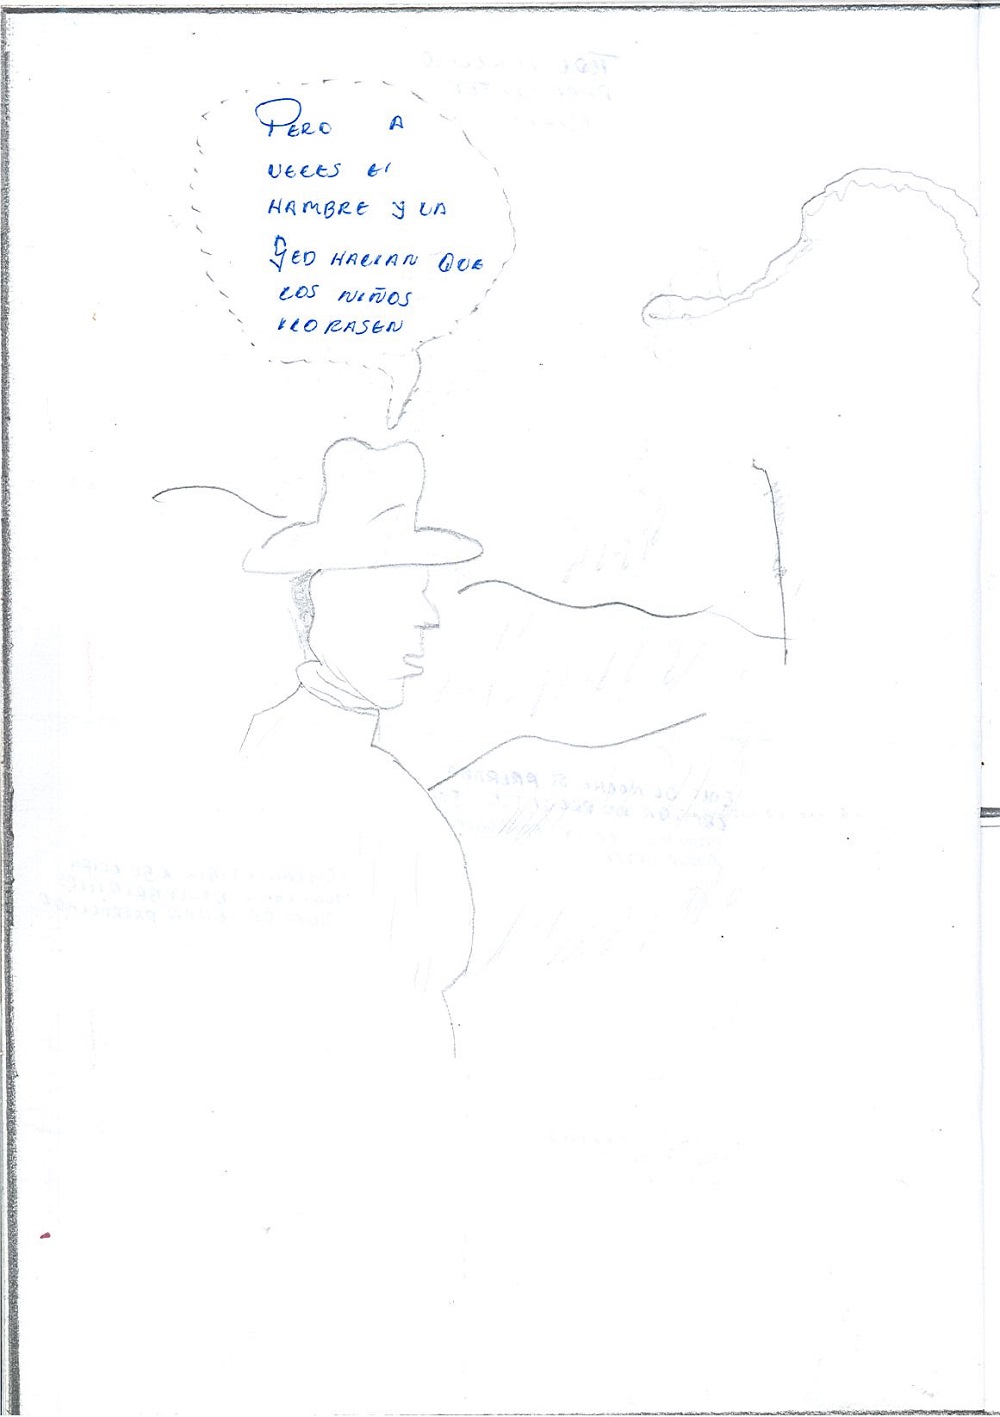 PERO A
VECES EL
HAMBRE Y LA
SED HACIAN QUE
LOS NIÑOS
LLORASEN